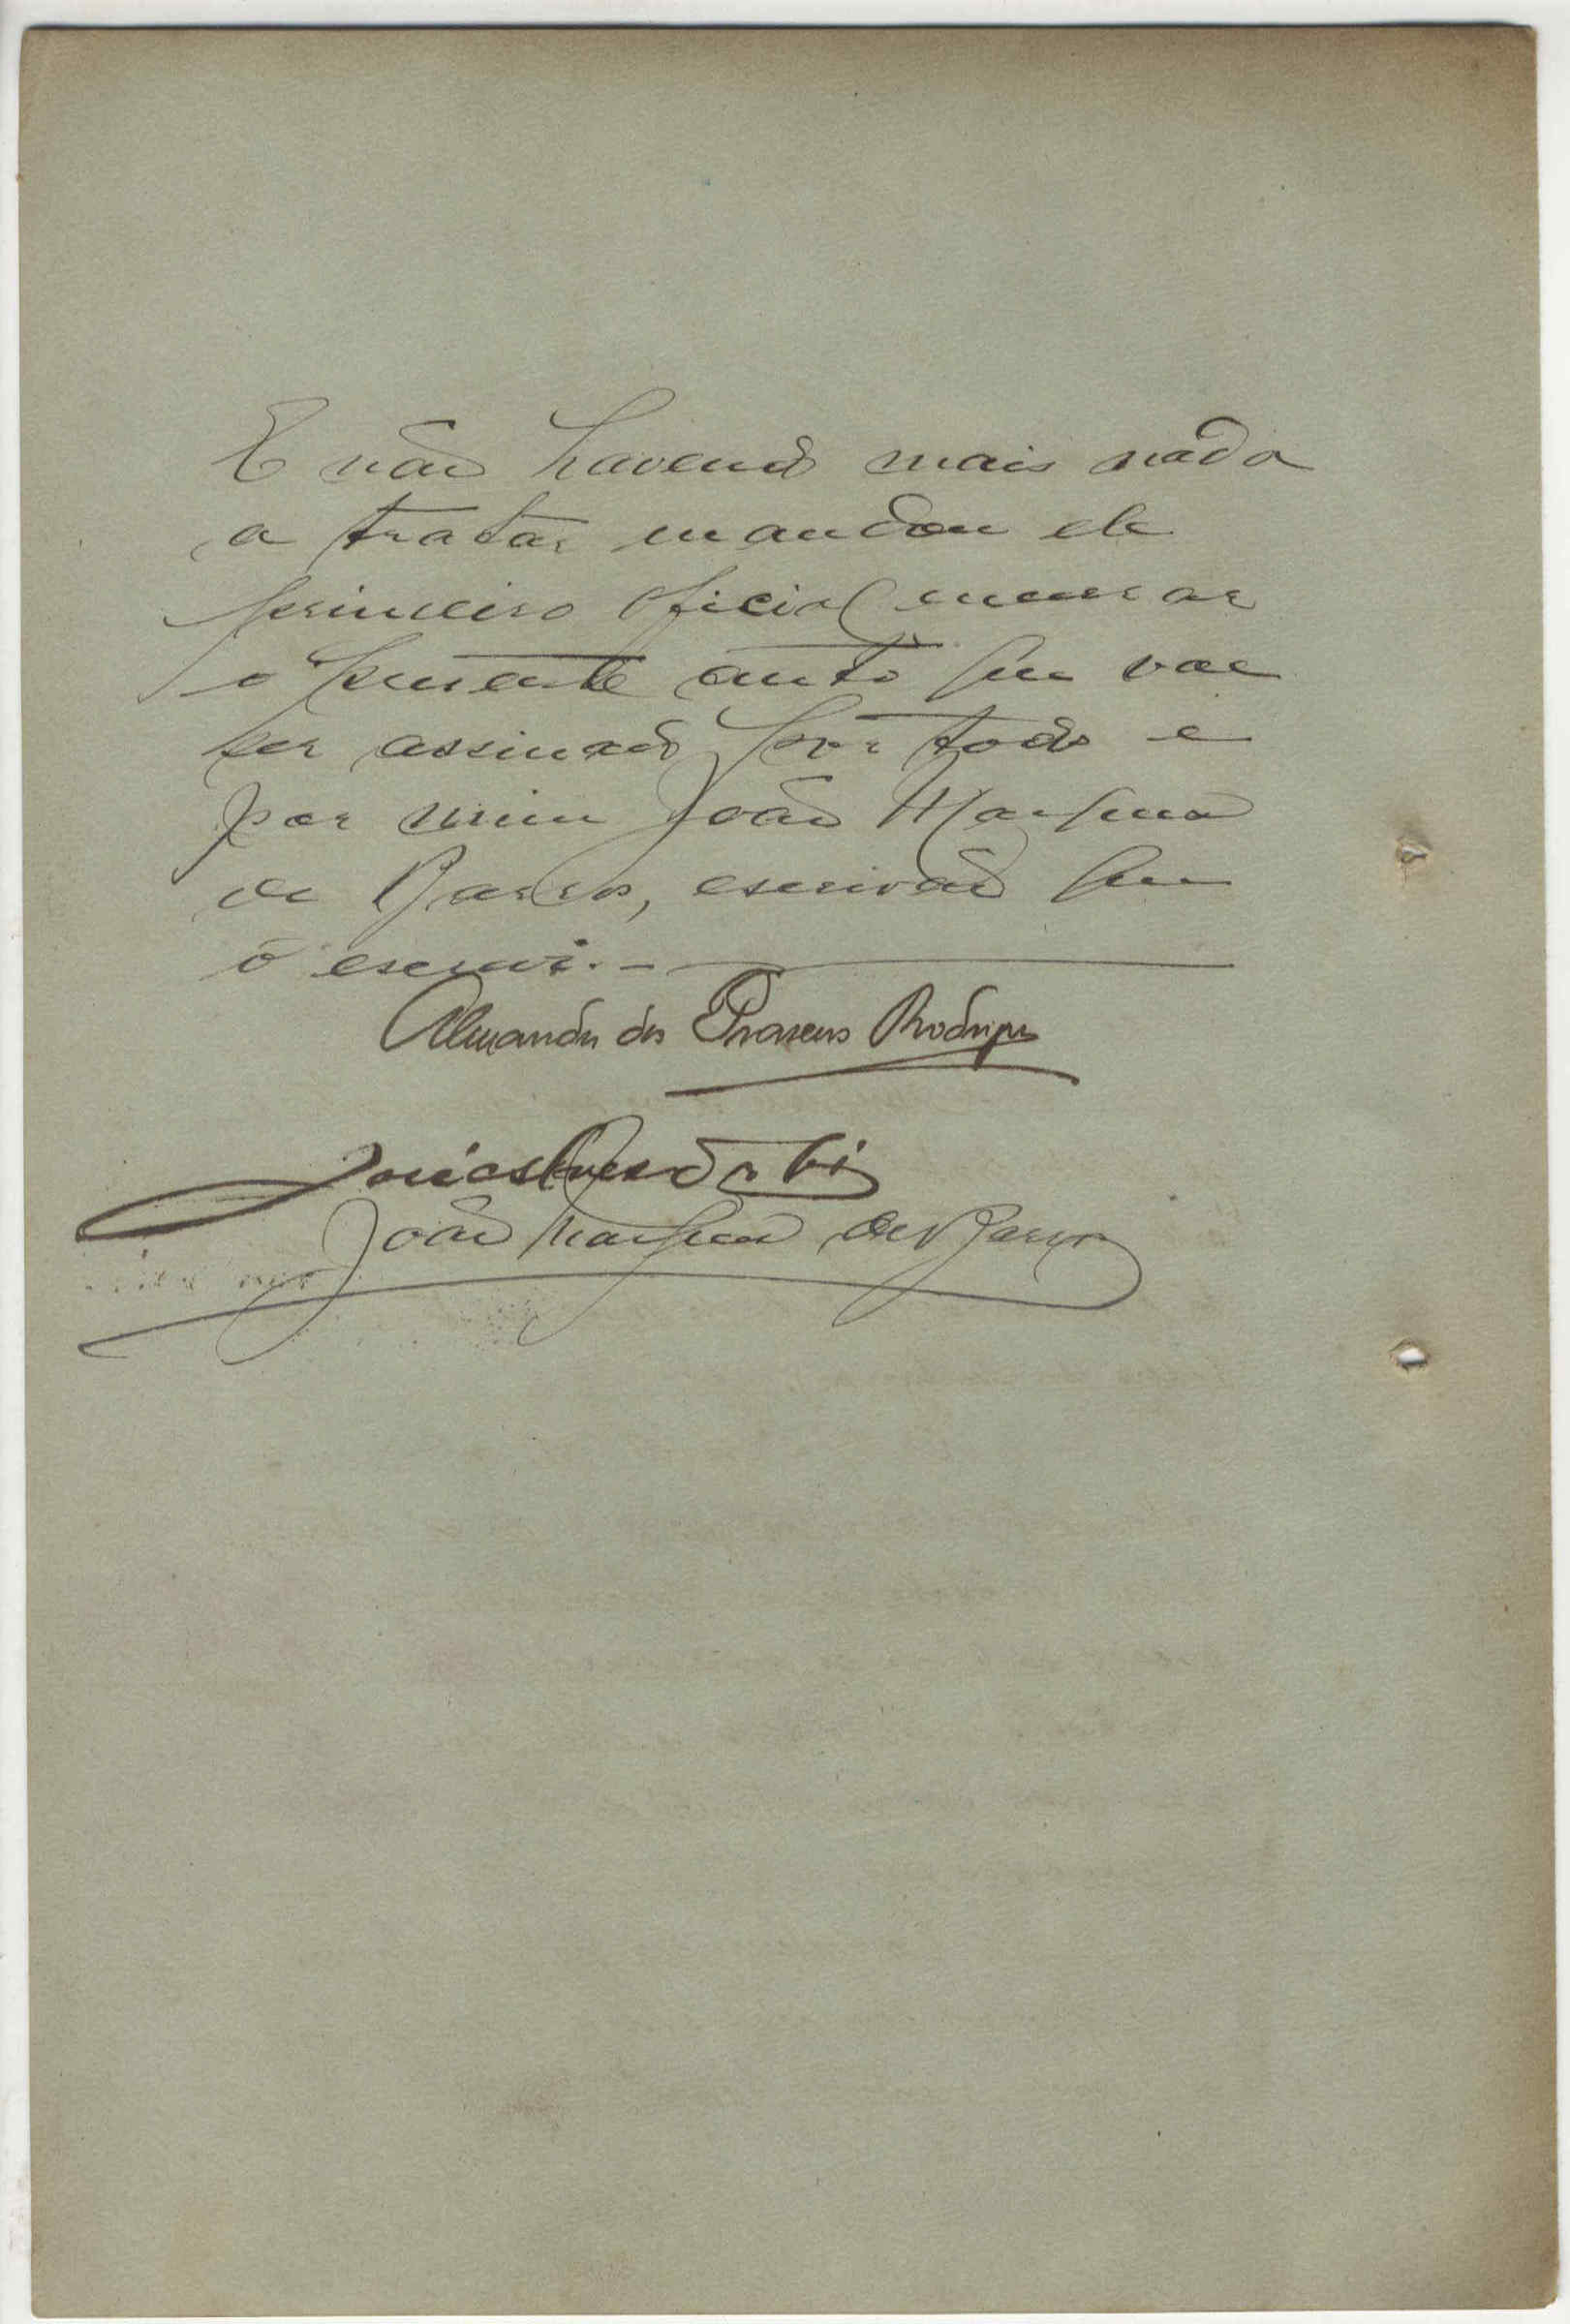 E não havendo mais nada
a tratar mandou ele
primeiro oficial encerrar
o presente auto que vae
ser assinado por todos e
por mim João Marques
de Barros, escrivão que
o escrevi. -
Almandro dos Prazeres Rodrigues
João Marques de Barros